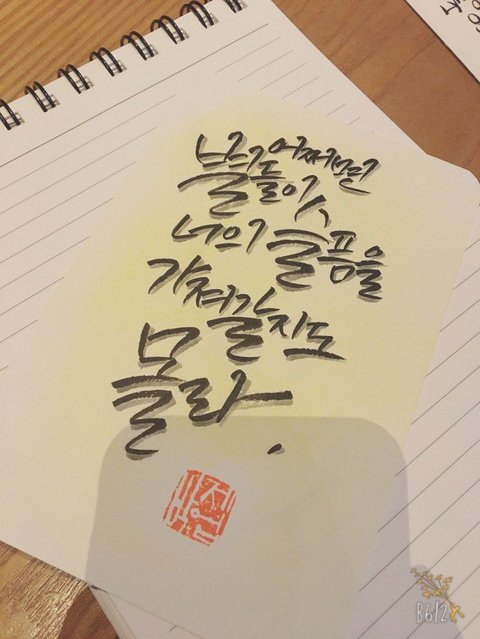 어쩌면
별들이
너의 슬픔을
가져갈지도
몰라.
B612